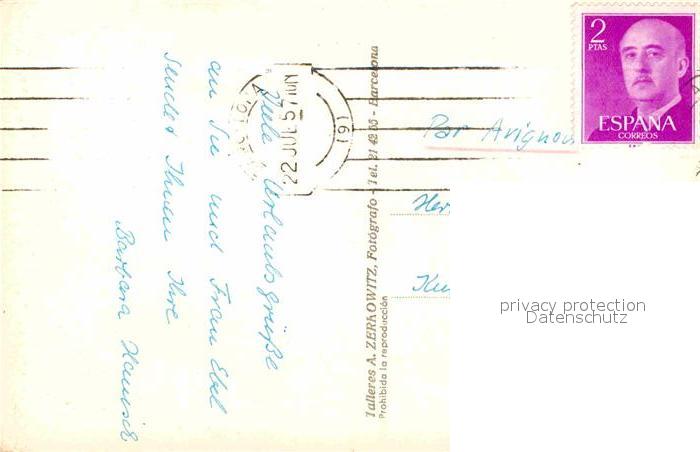 Viele Urlaubsgrüße
an Sie und Frau Ebel
sendet Ihnen Ihre
Barbara
Talleres A. ZERKOWITZ, Fotógrafo - Tel. 21 42 66 - Barcelona
Prohibida la reproducción
2
PTAS
ESPAÑA
CORREOS
Par Avignon
Her
privacy protection
Datenschutz